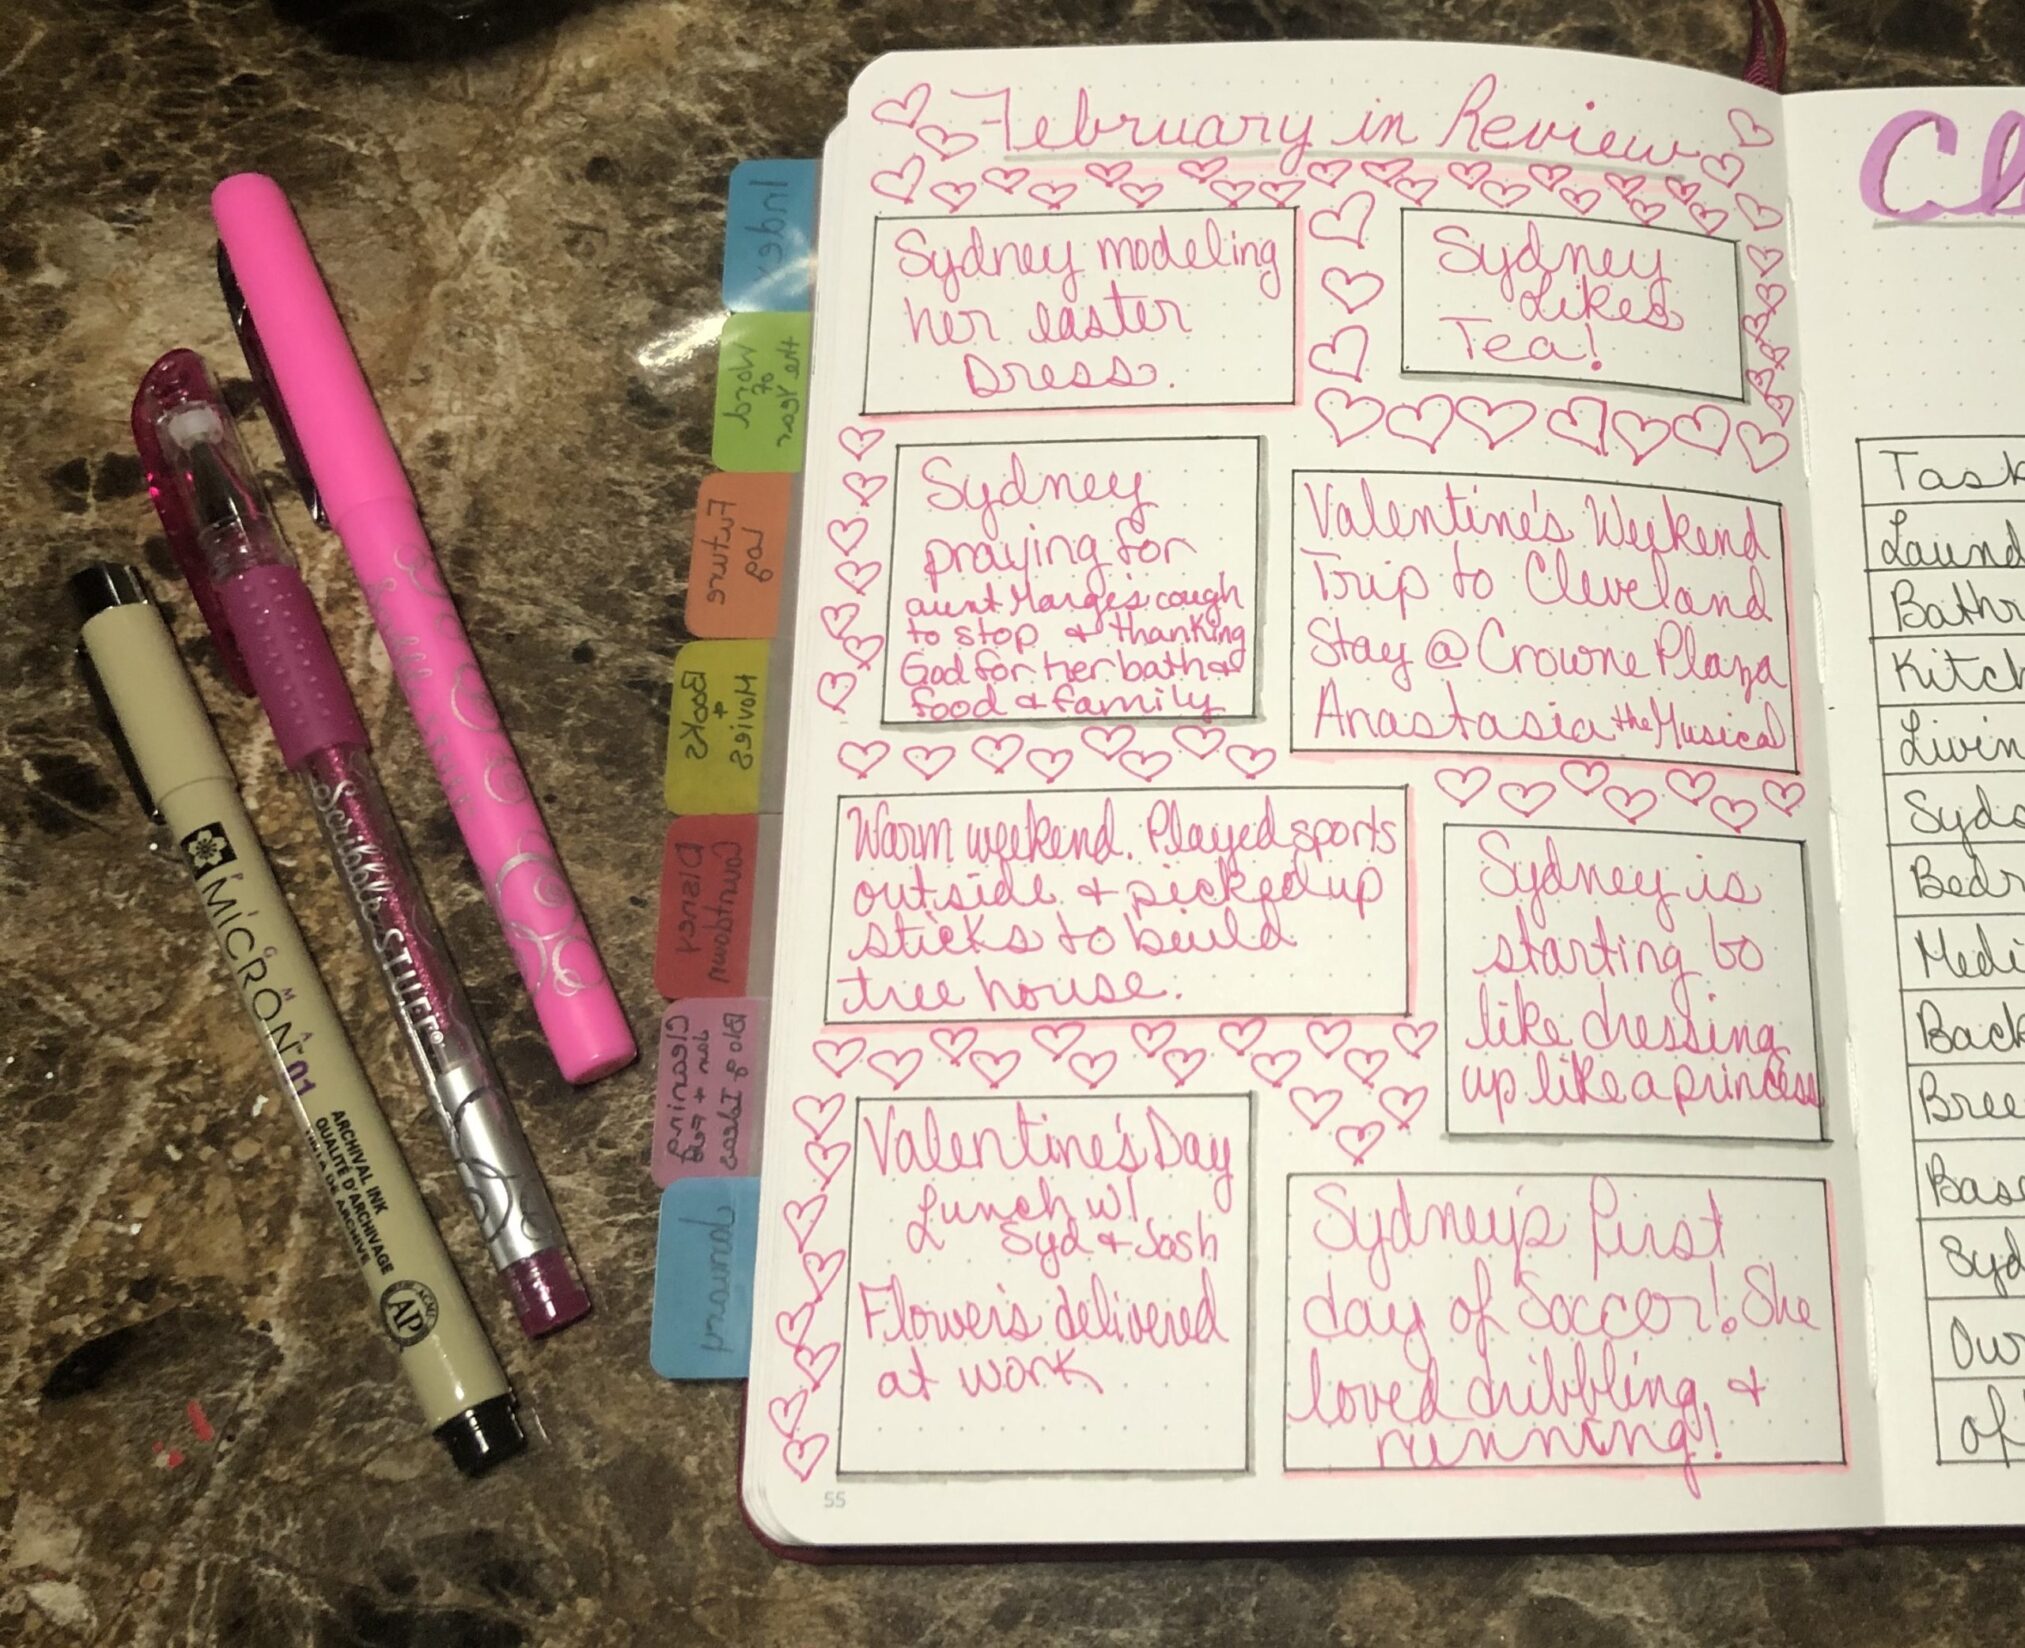 February in Review
Sydney modeling
her easter
Dress.
Sydney
Likes
Tea!
Sydney
praying for
aunt Marge's cough
to stop & thanking
God for her bath &
food & family
Valentine's Weekend
Trip to Cleveland
Stay @ Crowne Plaza
Anastasia the Musical
Warm weekend. Played sports
outside & picked up
sticks to build
tree house.
Sydney is
starting to
like dressing
up like a princess
Valentine's Day
Lunch w/
Syd & Josh
Flowers delivered
at work
Sydney's first
day of Soccer! She
loved dribbling &
running!
55
Cl
Task
Laund
Bathr
Kitch
Livin
Syd
Bedr
Medi
Back
Bree
Base
Syd
Our
of
Index
Word
of
the Year
Future
Log
Movies
+
Books
Disney
Countdown
Cleaning
Blog Ideas
Journal
PIGMA
MICRON 01
ARCHIVAL INK
QUALITÉ D'ARCHIVAGE
TINTA DE ARCHIVE
ACMI
AP
Scribble STUFF